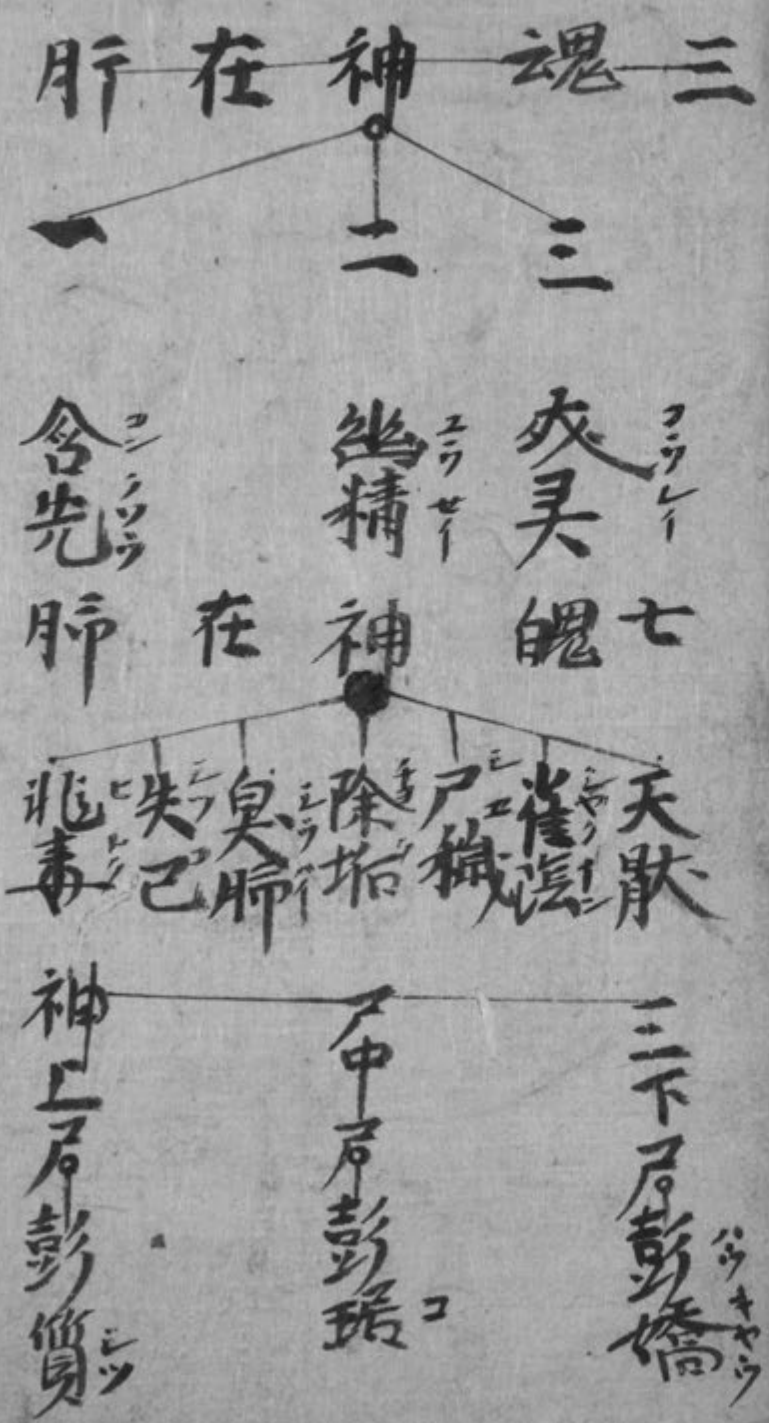 三魂神在肝
三
二
一
爽灵
コウレイ
幽精
ユウセイ
含光
七魄神在肺
天
雀陰
シヤクイン
尸穢
シエ
除垢
臭肺
シウハイ
失己
シツコ
非毒
ヒトク
三尸神
下君彭嬌
ハウキヤウ
中君彭琚
コ
上君彭質
シツ